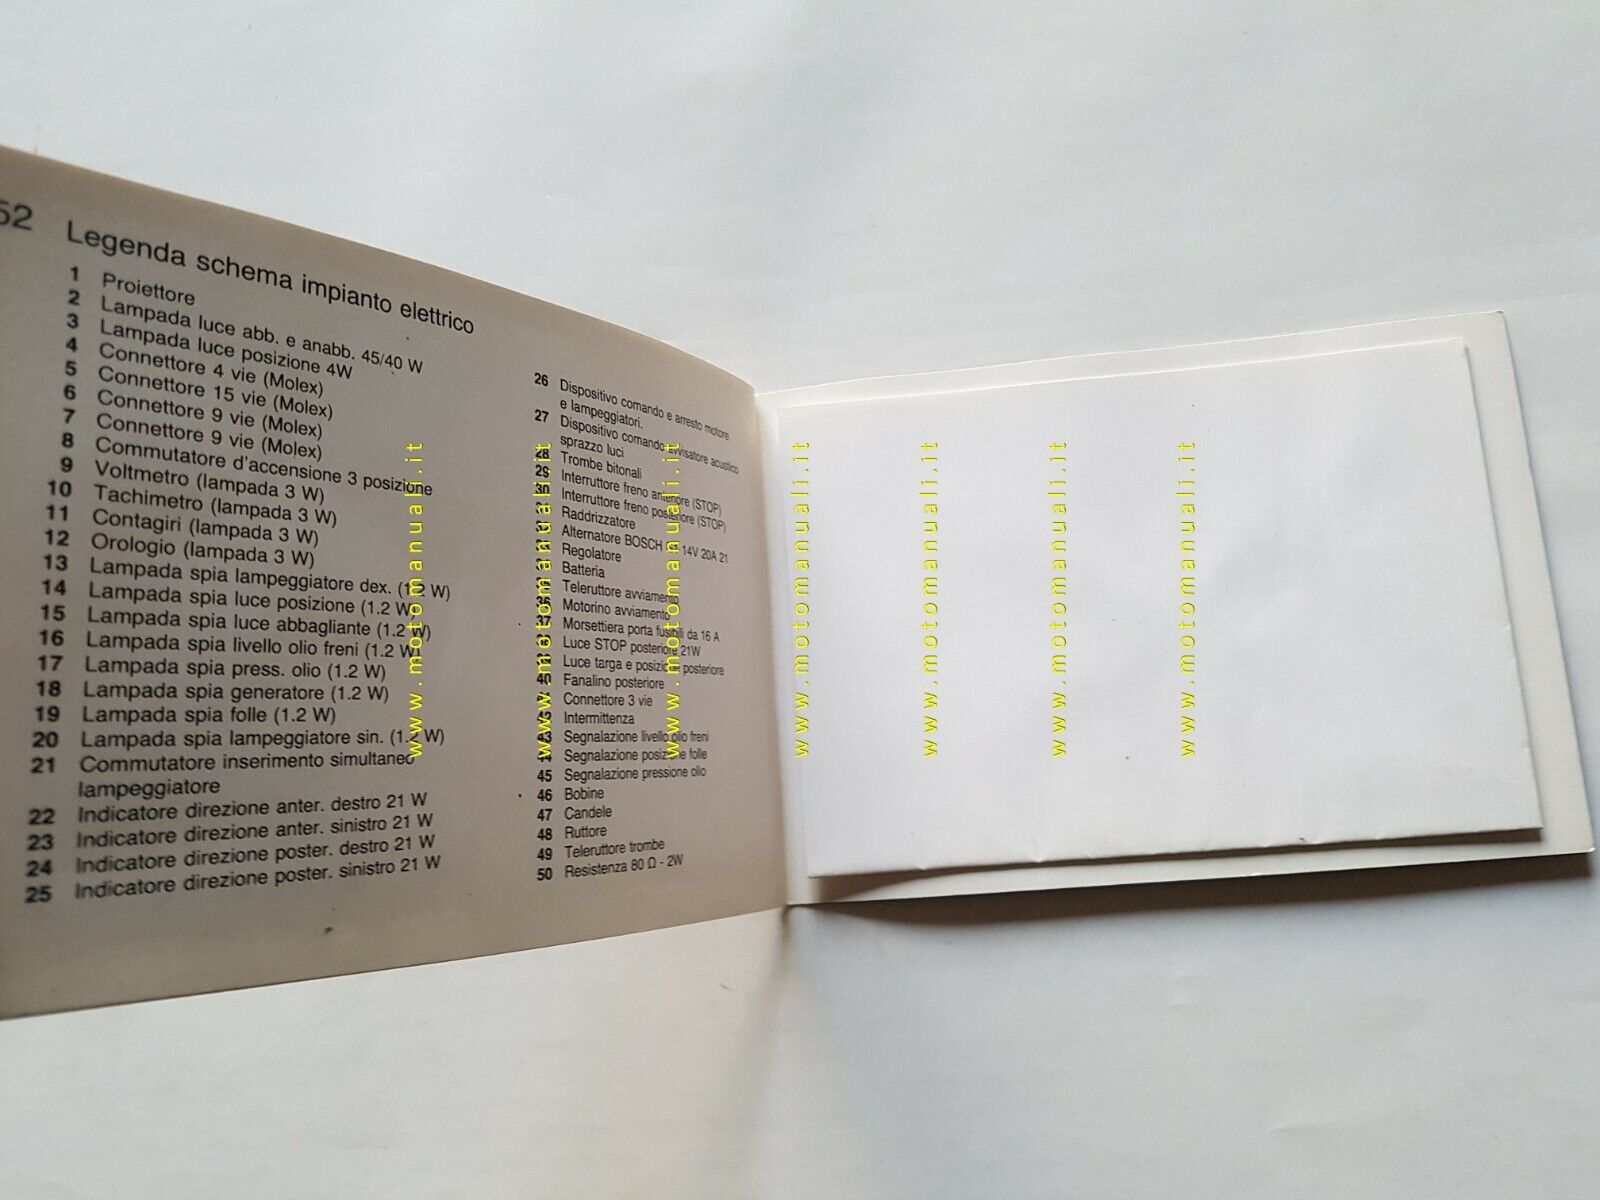 52
Legenda schema impianto elettrico
1 Proiettore
2 Lampada luce abb. e anabb. 45/40 W
3 Lampada luce posizione 4W
4 Connettore 4 vie (Molex)
5 Connettore 15 vie (Molex)
6 Connettore 9 vie (Molex)
7 Connettore 9 vie (Molex)
8 Commutatore d'accensione 3 posizione
9 Voltmetro (lampada 3 W)
10 Tachimetro (lampada 3 W)
11 Contagiri (lampada 3 W)
12 Orologio (lampada 3 W)
13 Lampada spia lampeggiatore dex. (1.2 W)
14 Lampada spia luce posizione (1.2 W)
15 Lampada spia luce abbagliante (1.2 W)
16 Lampada spia livello olio freni (1.2 W)
17 Lampada spia press. olio (1.2 W)
18 Lampada spia generatore (1.2 W)
19 Lampada spia folle (1.2 W)
20 Lampada spia lampeggiatore sin. (1.2 W)
21 Commutatore inserimento simultaneo
lampeggiatore
22 Indicatore direzione anter. destro 21 W
23 Indicatore direzione anter. sinistro 21 W
24 Indicatore direzione poster. destro 21 W
25 Indicatore direzione poster. sinistro 21 W
26 Dispositivo comando e arresto motore
e lampeggiatori.
27 Dispositivo comando avvisatore acustico
sprazzo luci
28 Trombe bitonali
29 Interruttore freno anteriore (STOP)
30 Interruttore freno posteriore (STOP)
Raddrizzatore
Alternatore BOSCH 14V 20A 21
Regolatore
Batteria
Teleruttore avviamento
36 Motorino avviamento
37 Morsettiera porta fusibili da 16 A
Luce STOP posteriore 21W
Luce targa e posizione posteriore
40 Fanalino posteriore
Connettore 3 vie
42 Intermittenza
43 Segnalazione livello olio freni
44 Segnalazione posizione folle
45 Segnalazione pressione olio
46 Bobine
47 Candele
48 Ruttore
49 Teleruttore trombe
50 Resistenza 80 Ω - 2W
www.motomanuali.it
www.motomanuali.it
www.motomanuali.it
www.motomanuali.it
www.motomanuali.it
www.motomanuali.it
www.motomanuali.it